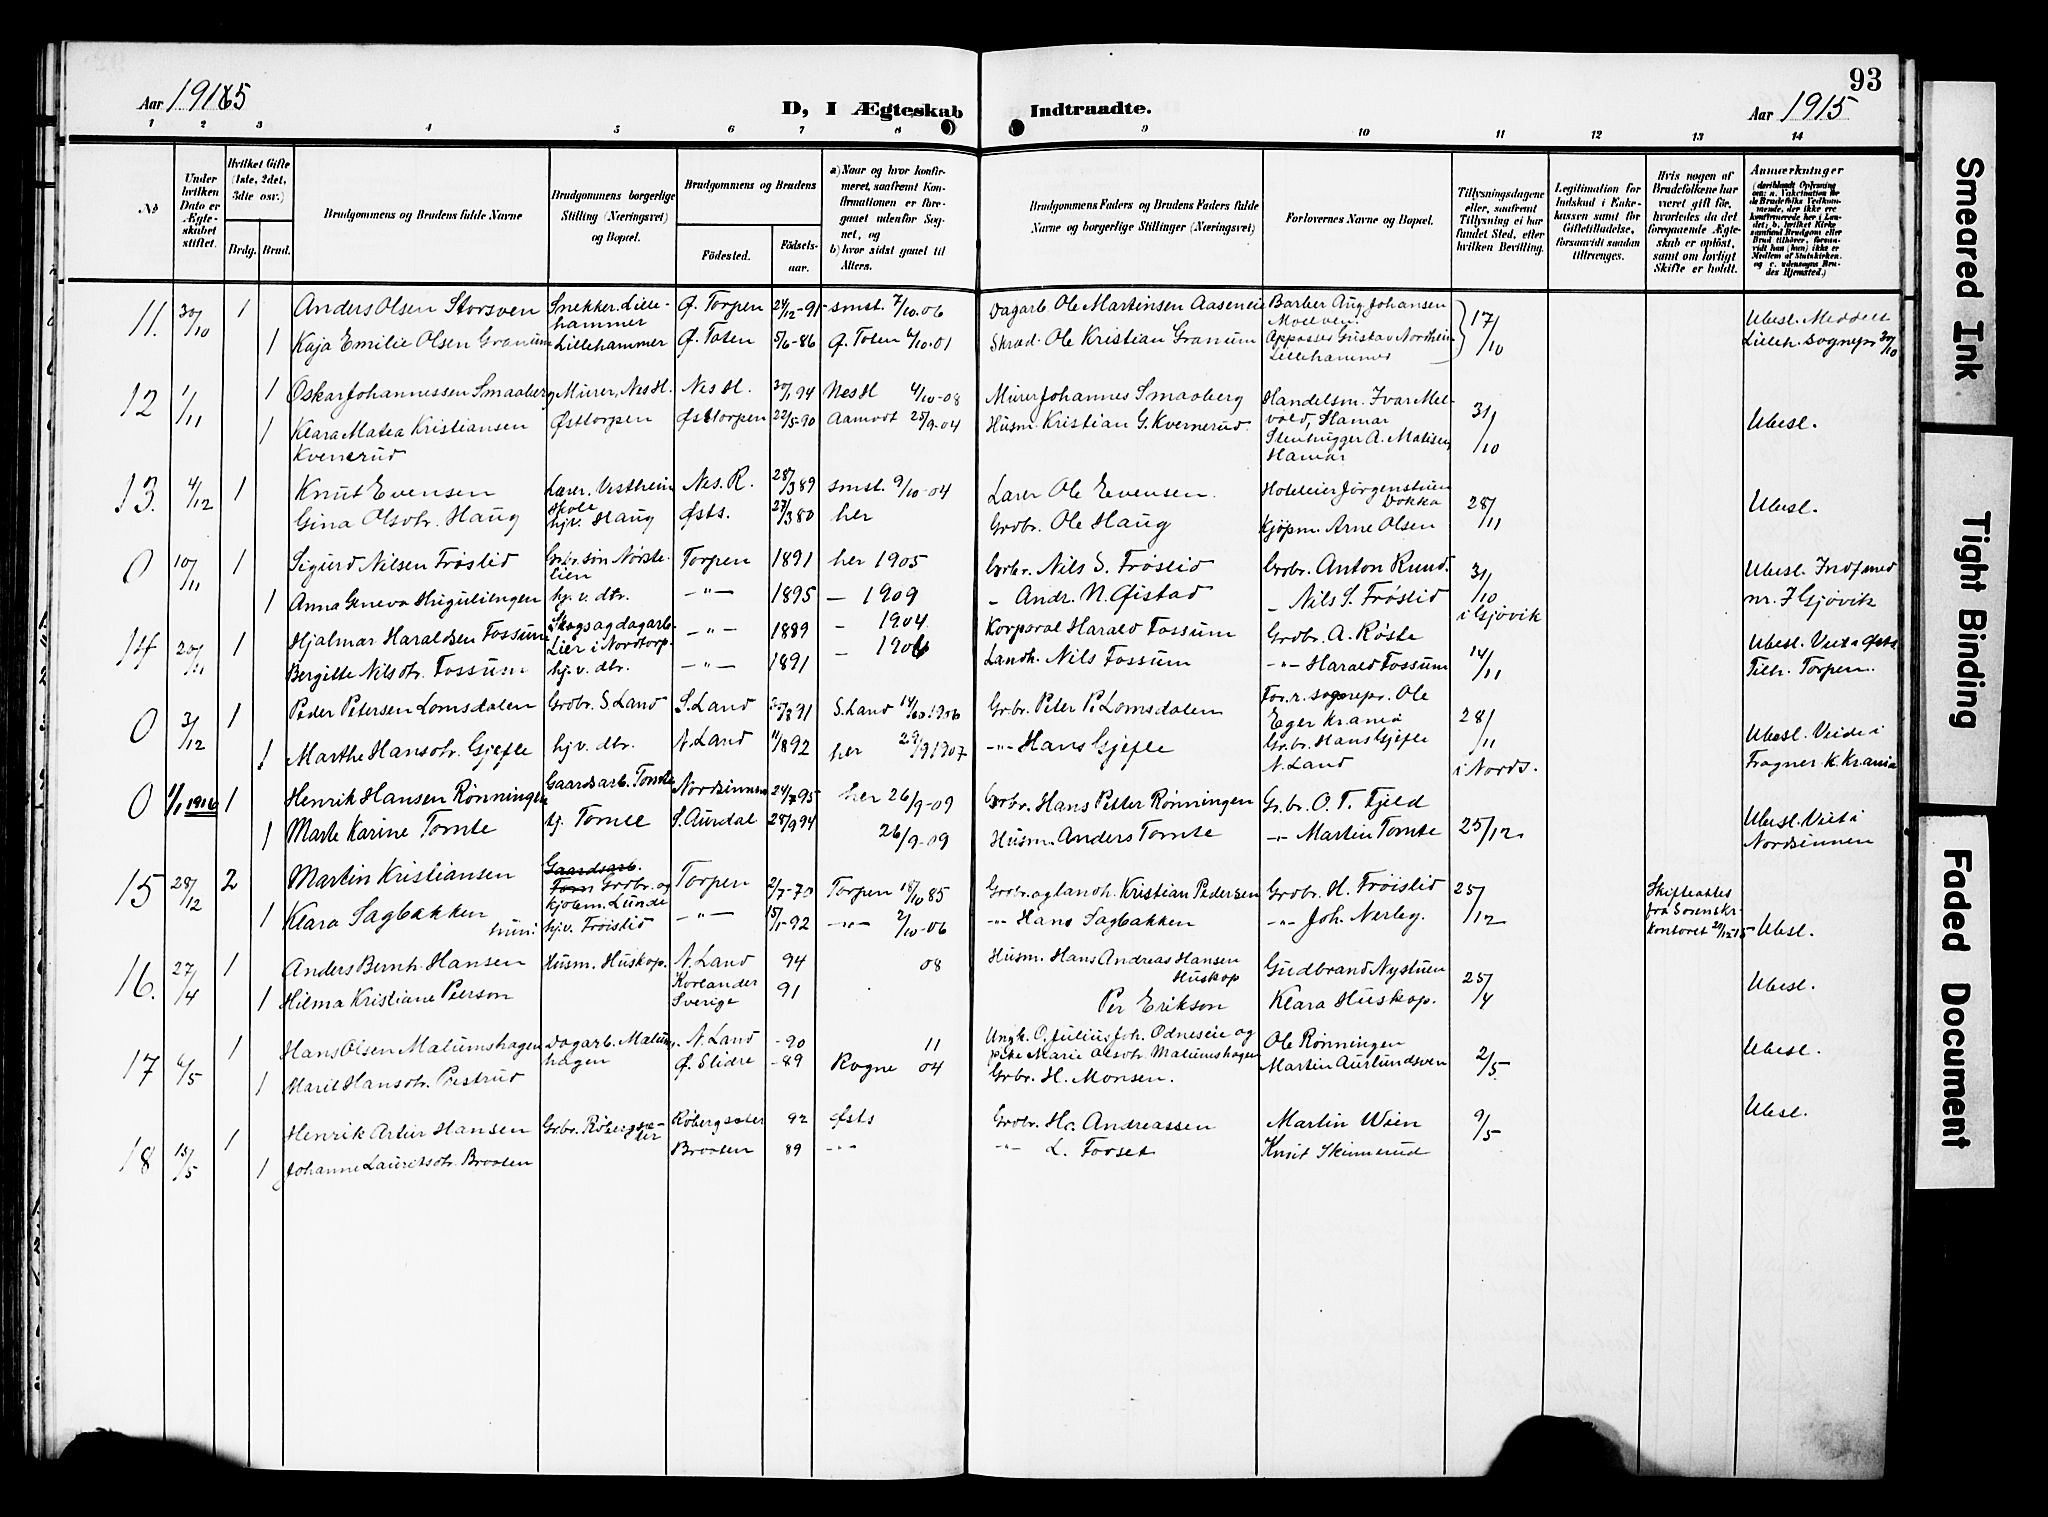 93
Aar 1915
D, I Ægteskab Indtraadte.
Aar 1915
1 2 3 4 5 6 7 8 9 10 11 12 13 14
No
Under hvilken Dato er Ægteskabet stiftet.
Hvilket Gifte (1ste, 2det, 3die osv.)
Brdg. Brud.
Brudgommens og Brudens fulde Navne
Brudgommens borgerlige Stilling (Næringsvei) og Bopæl.
Brudgommens og Brudens
Fødested. Fødselsaar.
a) Naar og hvor konfirmeret, saafremt Konfirmationen er foregaaet udenfor Sognet, og b) hvor sidst gaaet til Alters.
Brudgommens Faders og Brudens Faders fulde Navne og borgerlige Stillinger (Næringsvei)
Forlovernes Navne og Bopæl.
Tillysningsdagene eller, saafremt Tillysning ei har fundet Sted, efter hvilken Bevilling.
Legitimation for Indskud i Enkekassen samt for Giftetilladelse, forsaavidt saadan tiltrænges.
Hvis nogen af Brudefolkene har været gift før, hvorledes da det foregaaende Ægteskab er opløst, samt om lovligt Skifte er holdt.
Anmærkninger
11. 30/10 1 Anders Olsen Storsven Snekker Lillehammer Ø. Torpen 24/12-91 smst. 7/10.06 Dagarb Ole Martinsen Aaseneie Barber Aug. Johansen Moelven. 17/10 Ubesl. Meddelt
1 Kaja Emilie Olsen Granum Lillehammer Ø. Toten 5/6-86 Ø. Toten 6/10.01 Skræd. Ole Kristian Granum Gustav Nordheim Lillehammer Lilleh. sognepr 30/10
12 1/11 1 Oskar Johannessen Smaaberg Murer, Nes H. Nes H. 30/1 94 Nes H 4/10-08 Murer Johannes Smaaberg Handelsm. Ivar Melvold, Hamar 31/10 Ubesl.
1 Klara Matea Kristiansen Kvernerud Østtorpen Østtorpen 22/5-90 Aamodt 25/9-04 Husm. Kristian G. Kvernerud. Stenhugger A. Matisen, Hamar
13. 4/12 1 Knut Evensen Lærer. Vestheim Skole Nes. R. 28/3 89 smst. 9/10-04 Lærer Ole Evensen. Hoteleier Jørgenstuen Dokka 28/11 Ubesl.
Gina Olsdtr. Haug hjv. Haug Østs. 27/3 80 her Grdbr. Ole Haug Kjøpm. Arne Olsen
0 10/11 1 Sigurd Nilsen Frøslid Grbr. søn Nørstelien Torpen 1891 her 1905 Grbr. Nils S. Frøslid Grdbr. Anton Rund. 31/10 i Gjøvik Ubesl. Indf med
1 Anna Geneva Huguliengen hj. v. dtr. -"- 1895 - 1909 - Andr. N. Øistad - Nils S. Frøslid nr. 7 Gjøvik
14 20/11 1 Hjalmar Haraldsen Fossum Skogs og dagarb. Lier i Nordtorp. -"- 1889 - 1904 Korporal Harald Fossum Grdbr. A. Røste 14/11 Ubesl. Viet a Østs.
Bergitte Nilsdtr. Fossum hj. v. dtr. -"- 1891 - 1906 Landh. Nils Fossum -"- Harald Fossum Tilh. Torpen.
0 3/12 1 Peder Petersen Lomsdalen Grdbr. S. Land S. Land 8 91 S. Land 14/10 1906 Grbr. Peter P. Lomsdalen For. r. sognepr. Ole Eger Krania 28/11 i Nords. Ubesl. Viede i
1 Marthe Hansdtr. Gjefle hjv. dtr. N. Land 11/8 92 her 29/9 1907 -"- Hans Gjefle Gr.br. Hans Gjefle N. Land Frogner K. Krania
0 1/1 1916 1 Henrik Hansen Rønningen Gaardsarb. Tomte Nordsinnen 24/7 95 her 26/9-09 Grbr. Hans Petter Rønningen Gr.br. O. T. Fjeld 25/12. Ubesl. Viet i
1 Marte Karine Tomte tj. Tomte S. Aurdal 28/9 94 26/9-09 Husm. Anders Tomte -"- Martin Tomte Nordsinnen
15 28/12 2 Martin Kristiansen Gaardsarb. Grdbr. og kjøbm. Lunde Torpen 2/7-70 Torpen 18/10 85 Grdbr. og landh. Kristian Pedersen Grdbr. H. Frøislid 25/12 Skifteattest fra Sorenskr-kontoret 20/12 15 Ubesl.
1 Klara Sagbakken hjv. Frøislid -"- 15/1-92 -"- 2/10-06 -"- Hans Sagbakken -"- Joh. Nerby.
16. 27/4 1 Anders Bernh. Hansen Husm. Huskop. N. Land 94 08 Husm. Hans Andreas Hansen Huskop Gudbrand Nystuen 25/4 Ubesl.
1 Hilma Kristiane Person Sverige 91 Per Erikson Klara Huskop.
17 6/5 1 Hans Olsen Malumshagen dagarb. Malumhagen N. Land -90 11 Ungk. O. Julius Joh. Odneseie og pike Marie Olsdtr. Malumshagen Ole Rønningen 2/5. Ubesl.
1 Marit Hansdtr. Prestrud Ø. Slidre -89 Rogne 04 Grbr. H. Monsen. Martin Aurlundsven
18 15/5 1 Henrik Artur Hansen Grbr. Røbergsæter Røbergsæter 92 Østs Grdbr. H. Andreassen Martin Wien 9/5 Ubesl.
1 Johanne Lauritsdtr. Braaten Braaten 89 -"- -"- L. Forset Knut Skinnerud
Smeared Ink
Tight Binding
Faded Document